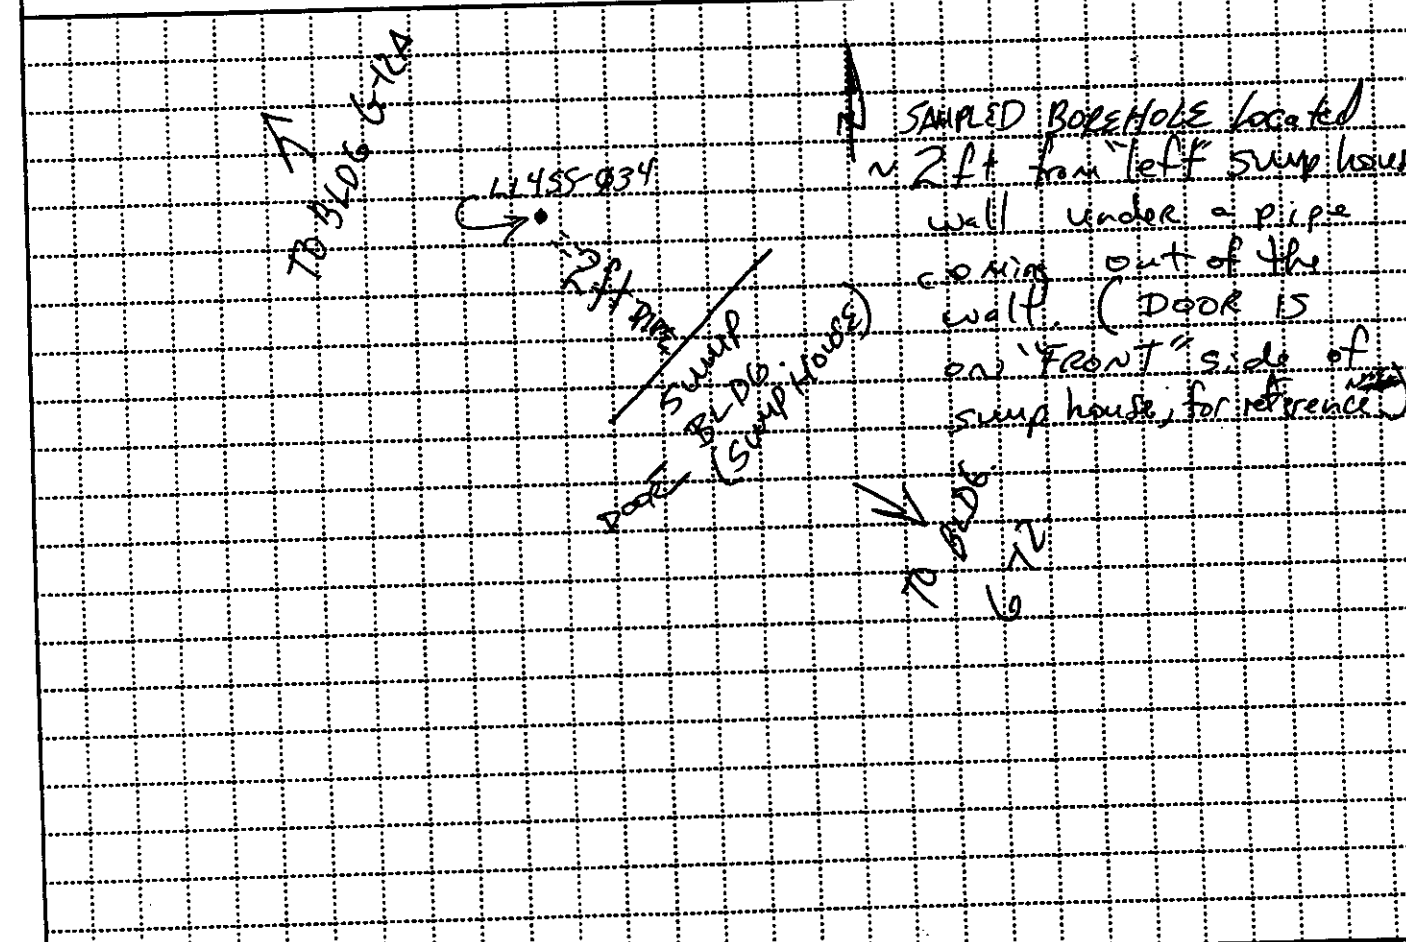 TO BLDG G-12A
LL4SS-034
~2ft
PIPE
SUMP
BLDG.
(SUMP HOUSE)
DOOR
N
SAMPLED BOREHOLE Located
~ 2ft from "left" sump hous
wall under a pipe
coming out of the
wall. (DOOR IS
on "FRONT" side of
sump house, for reference)
TO BLDG.
G-12